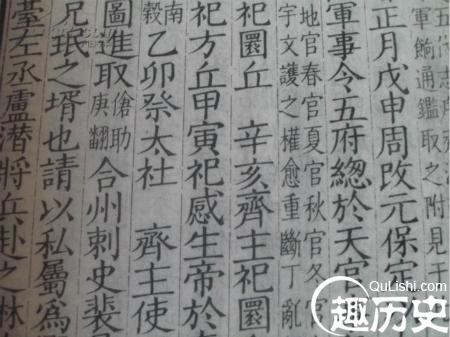 軍餉通鑑取之附見于
正月戊申周改元保定
軍事令五府總於天官
地官春官夏官秋官冬官
宇文護之權愈重斷丁亂
祀圜丘 辛亥齊主祀圜
祀方丘甲寅祀感生帝於
南
穀
乙卯祭太社 齊主使
圖進取傖助庚翻合州刺史裴
兄珉之壻也請以私屬爲
臺左丞盧潛將兵赴之林
QuLishi.com
趣历史